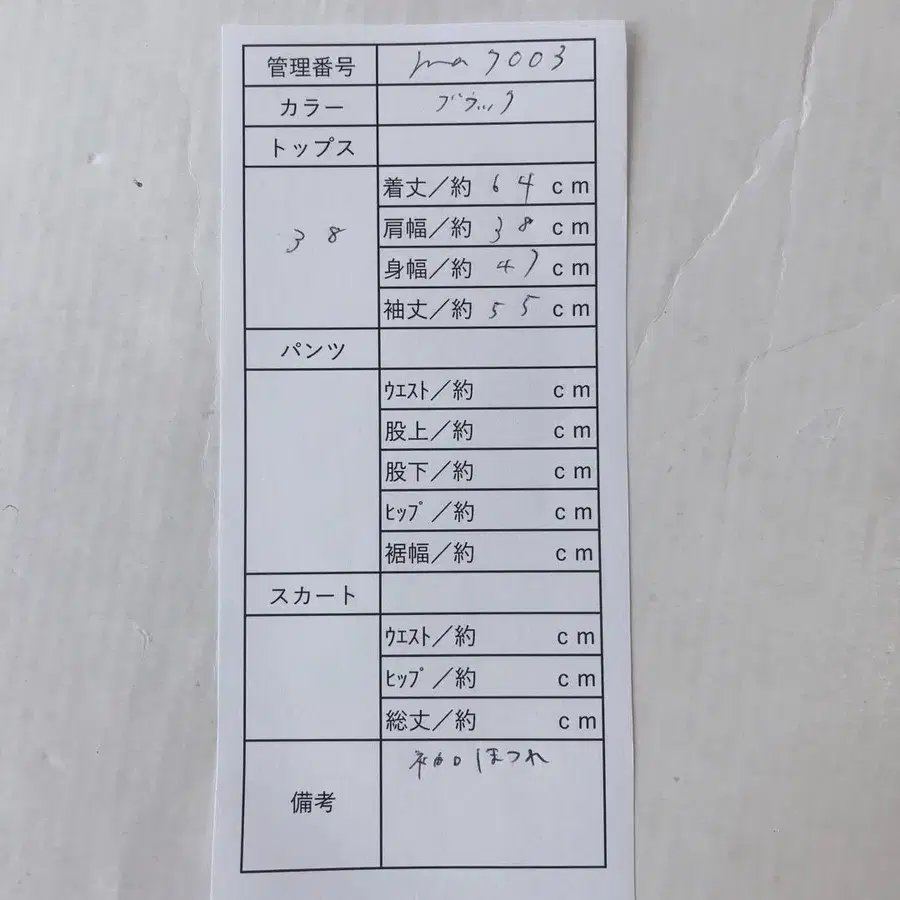 管理番号 ma 7003
カラー ブラック
トップス
38
着丈/約 64 cm
肩幅/約 38 cm
身幅/約 47 cm
袖丈/約 55 cm
パンツ
ｳｴｽﾄ/約 cm
股上/約 cm
股下/約 cm
ﾋｯﾌﾟ/約 cm
裾幅/約 cm
スカート
ｳｴｽﾄ/約 cm
ﾋｯﾌﾟ/約 cm
総丈/約 cm
備考 袖口ほつれ